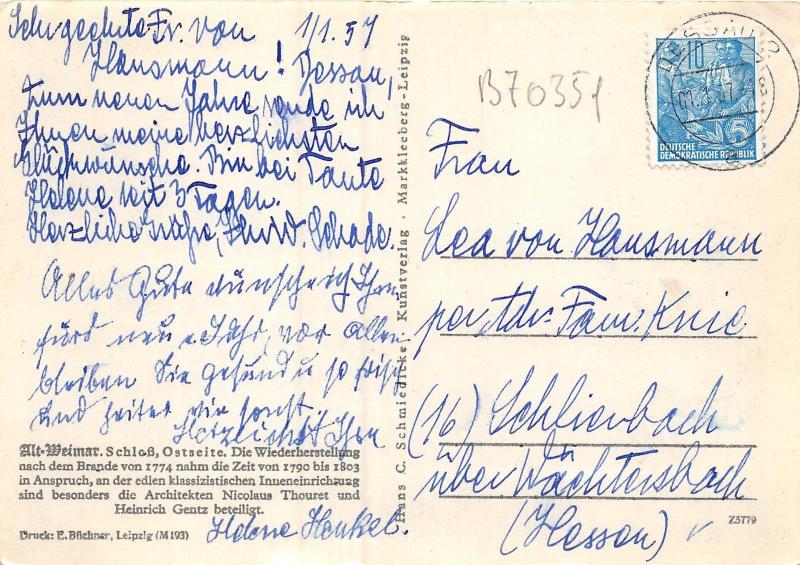 Sehr geehrte Fr. von 1/1.57
Hausmann! Dessau,
Zum neuen Jahre sende ich
Ihnen meine herzlichsten
Glückwünsche. Bin bei Tante
Helene seit 3 Tagen.
Herzliche Grüße, Schade.
Alles Gute wünsche ich Ihnen
fürs neue Jahr, vor allem
bleiben Sie gesund u so frisch
und heiter wie sonst.
Herzlichst Ihre
Helene Henkel.
Alt-Weimar. Schloß, Ostseite. Die Wiederherstellung
nach dem Brande von 1774 nahm die Zeit von 1790 bis 1803
in Anspruch, an der edlen klassizistischen Inneneinrichtung
sind besonders die Architekten Nicolaus Thouret und
Heinrich Gentz beteiligt.
Druck: E. Büchner, Leipzig (M 193)
Hans C. Schmiedicke, Kunstverlag · Markkleeberg-Leipzig
B70351
DESSAU
01.1.57
10
5
DEUTSCHE
DEMOKRATISCHE REPUBLIK
Frau
Lea von Hausmann
per Adr. Fam. Knie
(16) Schlierbach
über Wächtersbach
(Hessen)
Z5779